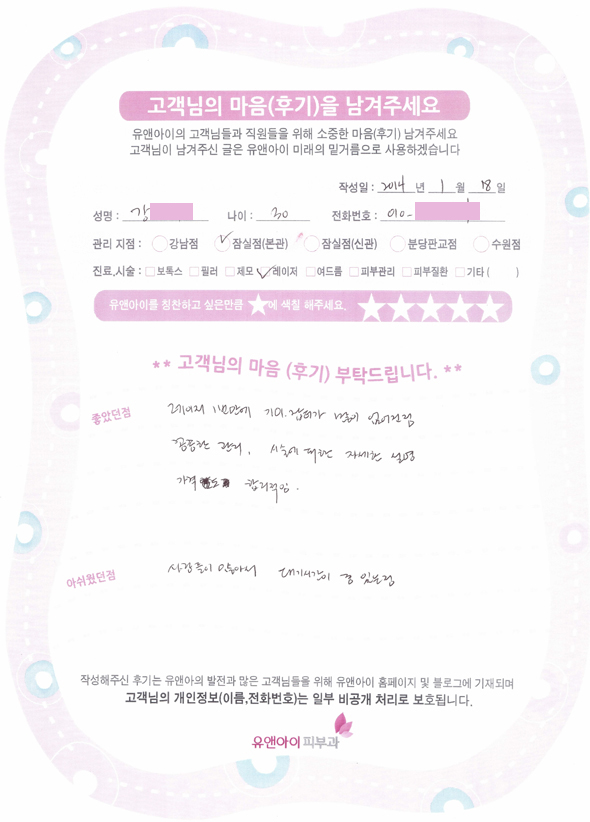 고객님의 마음(후기)을 남겨주세요
유앤아이의 고객님들과 직원들을 위해 소중한 마음(후기) 남겨주세요
고객님이 남겨주신 글은 유앤아이 미래의 밑거름으로 사용하겠습니다
작성일 : 2014 년 1 월 18 일
성명 : 강 나이 : 30 전화번호 : 010-
관리 지점 : 강남점 잠실점(본관) 잠실점(신관) 분당판교점 수원점
진료,시술 : 보톡스 필러 제모 레이저 여드름 피부관리 피부질환 기타 ( )
유앤아이를 칭찬하고 싶은만큼 ★에 색칠 해주세요. ★★★★★
** 고객님의 마음 (후기) 부탁드립니다. **
좋았던점 레이저 1번만에 기미.잡티가 많이 없어진점
꼼꼼한 관리, 시술에 대한 자세한 설명
가격도 합리적임.
아쉬웠던점 사람들이 많아서 대기시간이 좀 있는점
작성해주신 후기는 유앤아의 발전과 많은 고객님들을 위해 유앤아이 홈페이지 및 블로그에 기재되며
고객님의 개인정보(이름,전화번호)는 일부 비공개 처리로 보호됩니다.
유앤아이 피부과